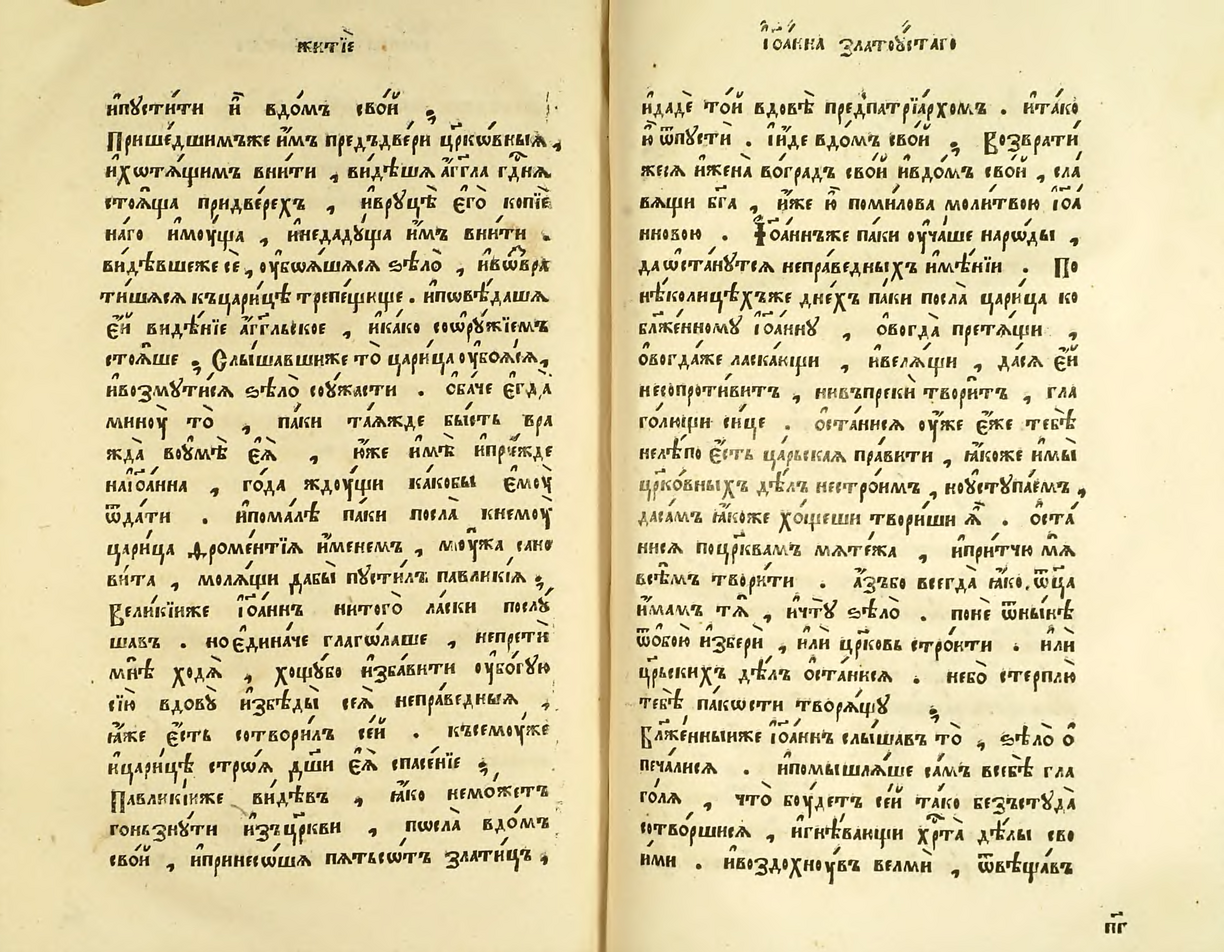 житїе
ипустити й вдомъ свой ⁏
Пришедшимъже имъ предъдвери црковныѧ ,
ихотѧщимъ внити , видѣшѧ аггла гднѧ
стоѧща придверехъ , ивруцѣ его копїе
наго имоуща , инедадуща имъ внити .
видѣвшеже се , оубоѧшѧсѧ ѕѣло , ивѡвра
тишѧсѧ къцарицѣ трепещище . иповѣдашѧ
ей видѣнїе аггльское , икако сооружїемъ
стоѧше ⁏ Слышавшиже то царица оубоѧсѧ ,
ивозмутисѧ ѕѣло соужасти . обаче егда
миноу то , паки таѧжде бысть вра
жда воумѣ еѧ , юже имѣ ипрежде
наїоанна , года ждоущи какобы емоу
ѿдати . ипомалѣ паки посла кнемоу
царица Дроментїѧ именемъ , моужа сано
вита , молѧщи дабы пустилъ павликїѧ ⁏
Великїиже їоаннъ нитого ласки послу
шавъ . ноединаче глаголаше , непрети
мнѣ ходѧ , хощубо избавити оубогую
сїю вдову избѣды сеѧ неправедныѧ ,
ꙗже есть сотворилъ сей . къс емоуже
ицарицѣ строѧ дши еѧ спасенїе ⁏
Павликїиже видѣвъ , ꙗко неможетъ
гоньзнути изъцркви , посла вдомъ
свой , ипринесошѧ пѧтьсотъ златицъ ,
їоанна златоустаго
идаде той вдовѣ предпатрїархомъ . итако
ю ѿпусти . їиде вдомъ свой ⁏ Возврати
жесѧ ижена воградъ свой ивдомъ свой , сла
вѧщи бга , иже ю помилова молитвою їоа
нновою . Їоаннъже паки оучаше народы ,
даѡстанутсѧ неправедныхъ имѣнїи . По
нѣколицѣхъже днехъ паки посла царица ко
блаженному їоанну , овогда претѧщи ,
овогдаже ласкающи , ивелѧщи , дасѧ ей
несопротивитъ , нивъпреки творитъ , гла
голющи сице . останисѧ оуже еже тебѣ
нелѣпо есть царьскаѧ правити , ꙗкоже имы
црковныхъ дѣлъ нестроимъ , ноуступаемъ ,
дасамъ ꙗкоже хощеши твориши ѧ . оста
нисѧ поцрквамъ мѧтежа , ипритчю мѧ
всѣмъ творити . азъбо всегда ꙗко ѿца
имамъ тѧ , ичту ѕѣло . поне ѿнынѣ
ѿобою избери , или црковь строити . или
црьскихъ дѣлъ останисѧ . небо стерплю
тебѣ пакости творѧщу ⁏
Блженныиже їоаннъ слышавъ то , ѕѣло о
печалисѧ . ипомышлѧше самъ всебѣ гла
голѧ , что боудетъ сей тако безъстуда
сотворшисѧ , игнѣвающи хрта дѣлы сво
ими . ивоздохноувъ велми , ѿвѣщавъ
пг